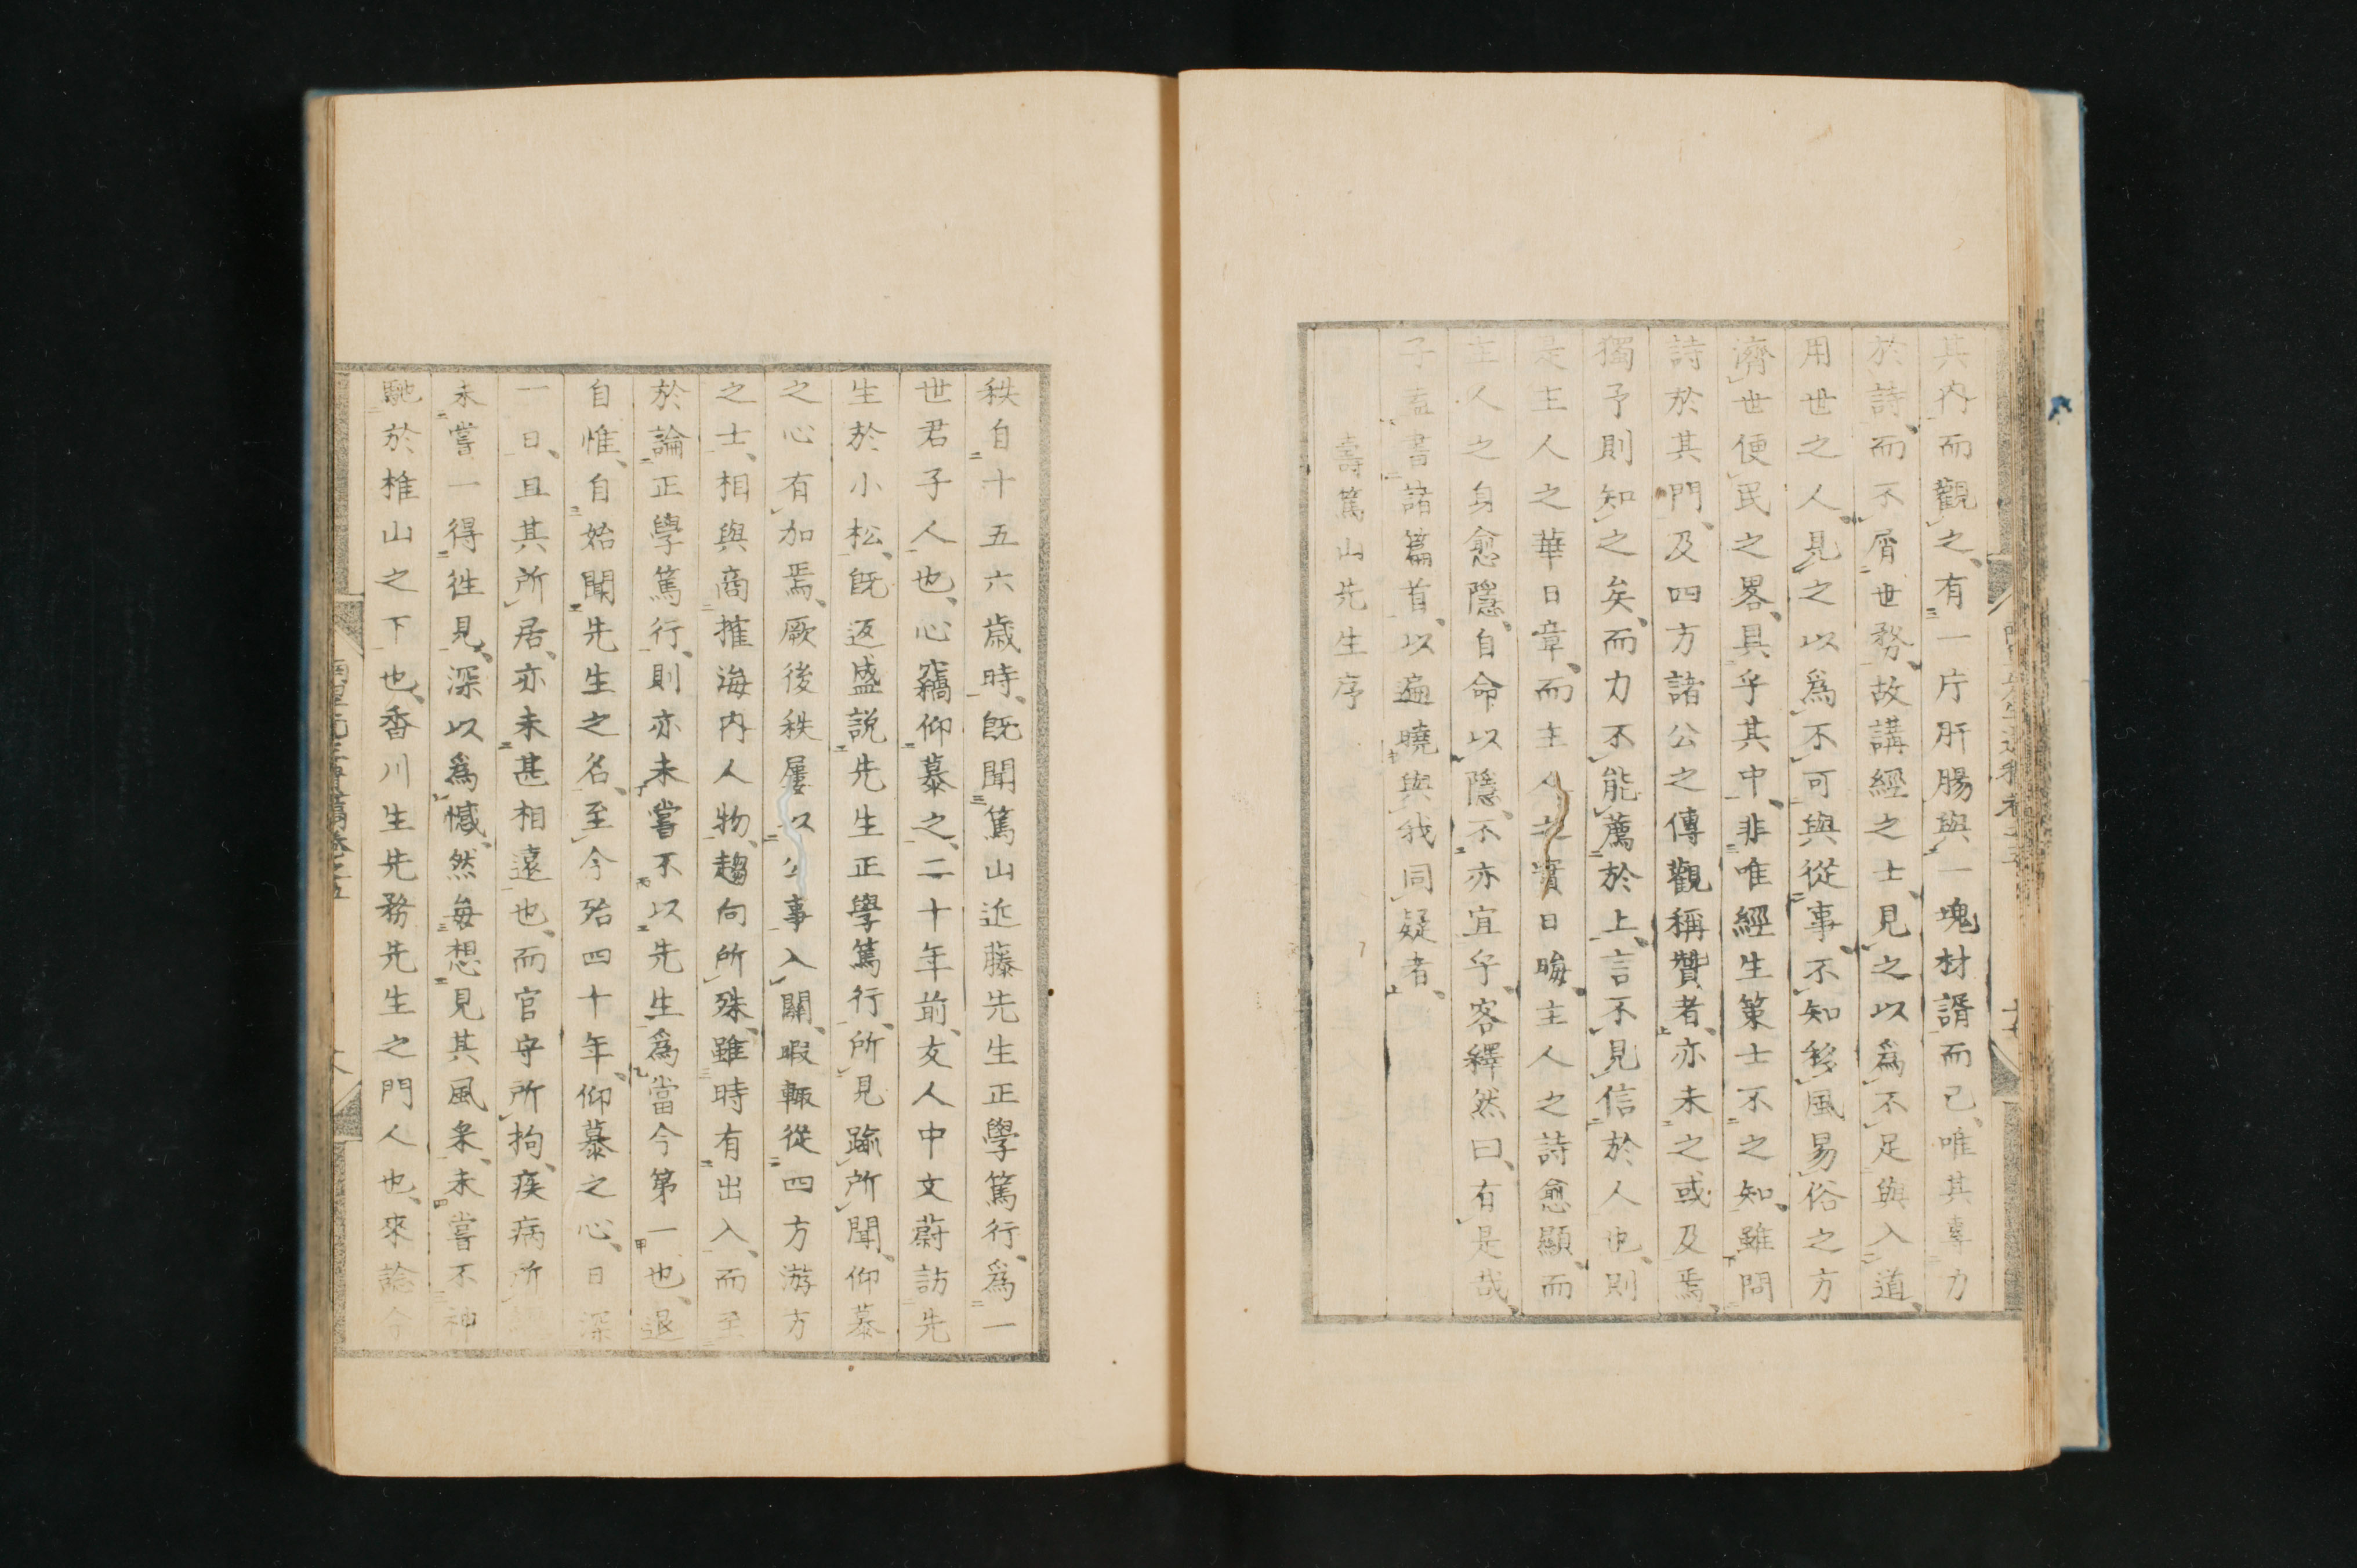 其内而觀之、有一片肝腸與一塊材諝而已、唯其專力
於詩、而不屑世務、故講經之士、見之以爲不足與入道、
用世之人、見之以爲不可與從事、不知移風易俗之方
濟世便民之畧、具乎其中、非唯經生策士不之知、雖問
詩於其門、及四方諸公之傳觀稱贊者、亦未之或及焉、
獨予則知之矣、而力不能薦於上、言不見信於人也、則
是主人之華日章、而主人之實日晦、主人之詩愈顯、而
主人之身愈隱、自命以隱、不亦宜乎、客釋然曰、有是哉、
子盍書諸篇首、以遍曉與我同疑者、
壽篤山先生序
秩自十五六歳時、既聞篤山近藤先生正學篤行、爲一
世君子人也、心竊仰慕之、二十年前、友人中文蔚訪先
生於小松、既返盛説先生正學篤行、所見踰所聞、仰慕
之心有加焉、厥後秩屢以公事入關、暇輒從四方游方
之士、相與商搉海内人物、趨向所殊、雖時有出入、而至
於論正學篤行、則亦未嘗不以先生爲當今第一也、退
自惟、自始聞先生之名、至今殆四十年、仰慕之心、日深
一日、且其所居、亦未甚相遠也、而官守所拘、疾病所
未嘗一得徃見、深以爲憾、然毎想見其風采、未嘗不神
馳於椎山之下也、香川生先務先生之門人也、來諗今